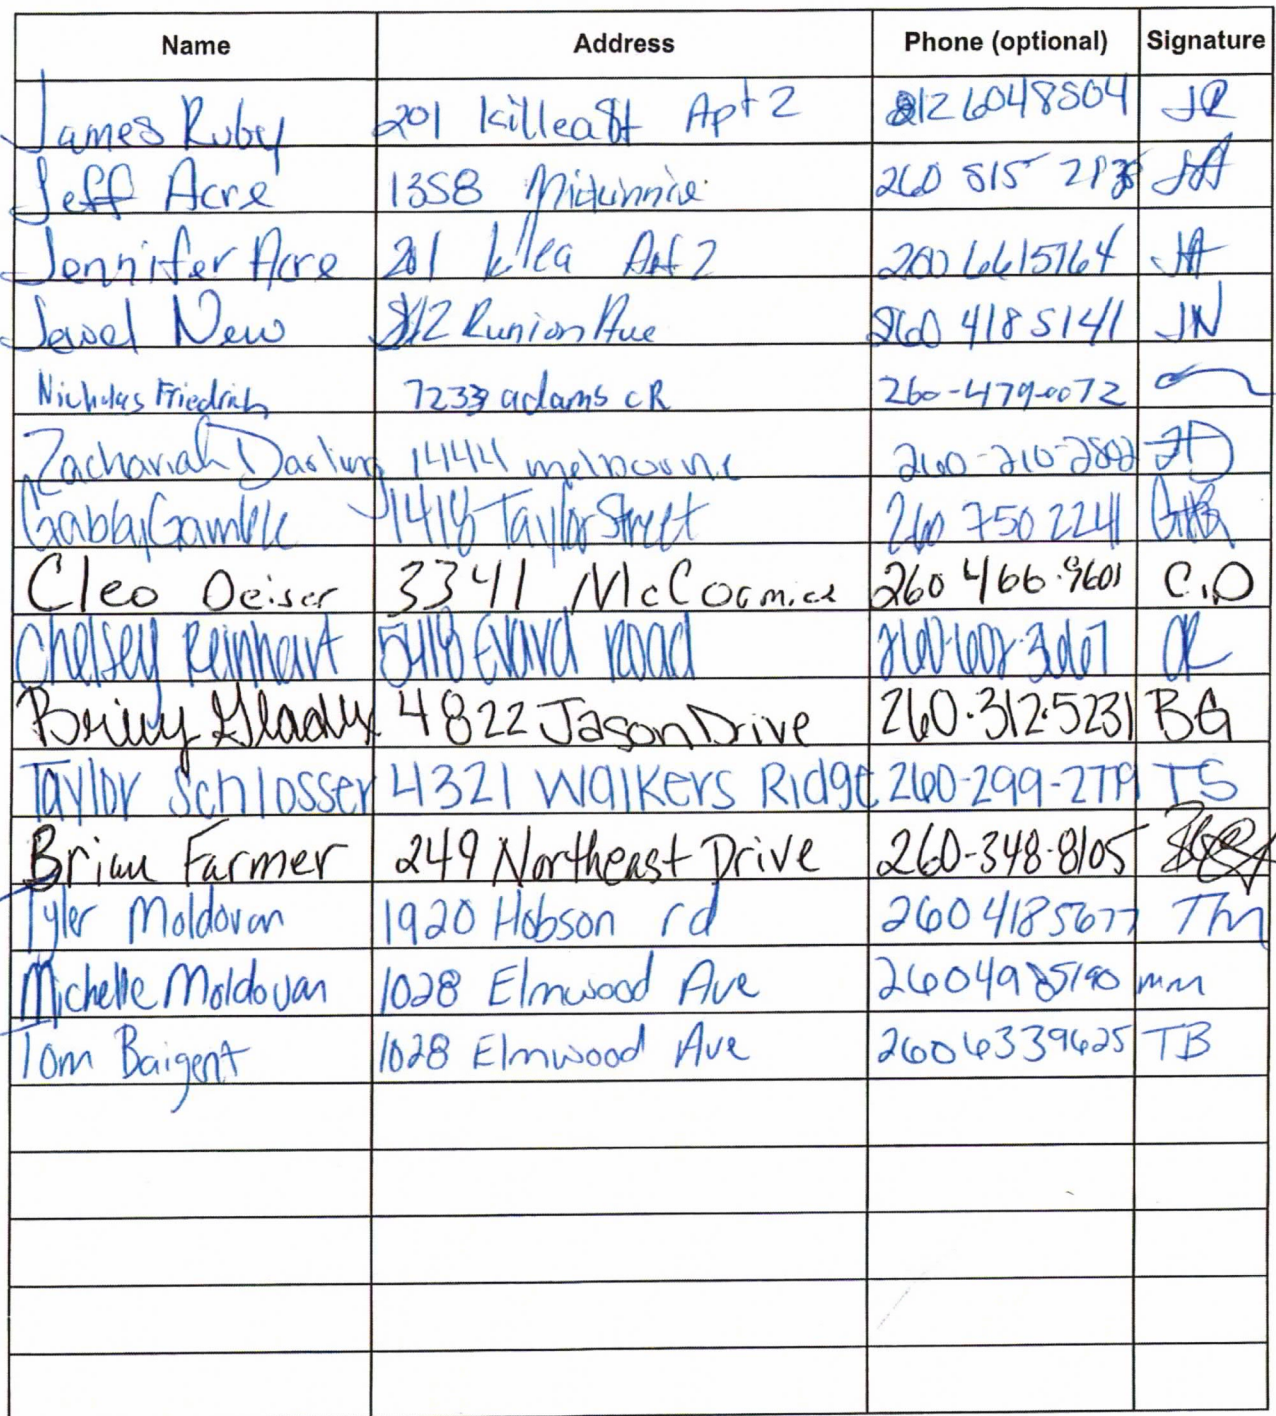 Name Address Phone (optional) Signature
James Ruby 201 killea St Apt 2 812 6048504 JR
Jeff Acre 1358 260 815 JA
Jennifer Acre 201 killea Apt 2 260 6615764 JA
Jewel New 812 Runion Ave 260 418 5141 JN
Nicholas Friedrich 7233 adams cR 260-479-0072
Zachariah Darling 1444 melbourne 260-210-2802 ZD
Gabby Gamble 1418 Taylor Street 260 750 2241
Cleo Deiser 3341 McCormick 260 466.9601 C.D
Chelsey Reinhart 5418 Evard road CR
4822 Jason Drive 260.312.5231 BG
Taylor Schlosser 4321 Walkers Ridge 260-299-2779 TS
Brian Farmer 249 Northeast Drive 260-348-8105
Tyler Moldovan 1920 Hobson rd 260 4185677 TM
Michelle Moldovan 1028 Elmwood Ave 2604985190 mm
Tom Baigent 1028 Elmwood Ave 2606339625 TB